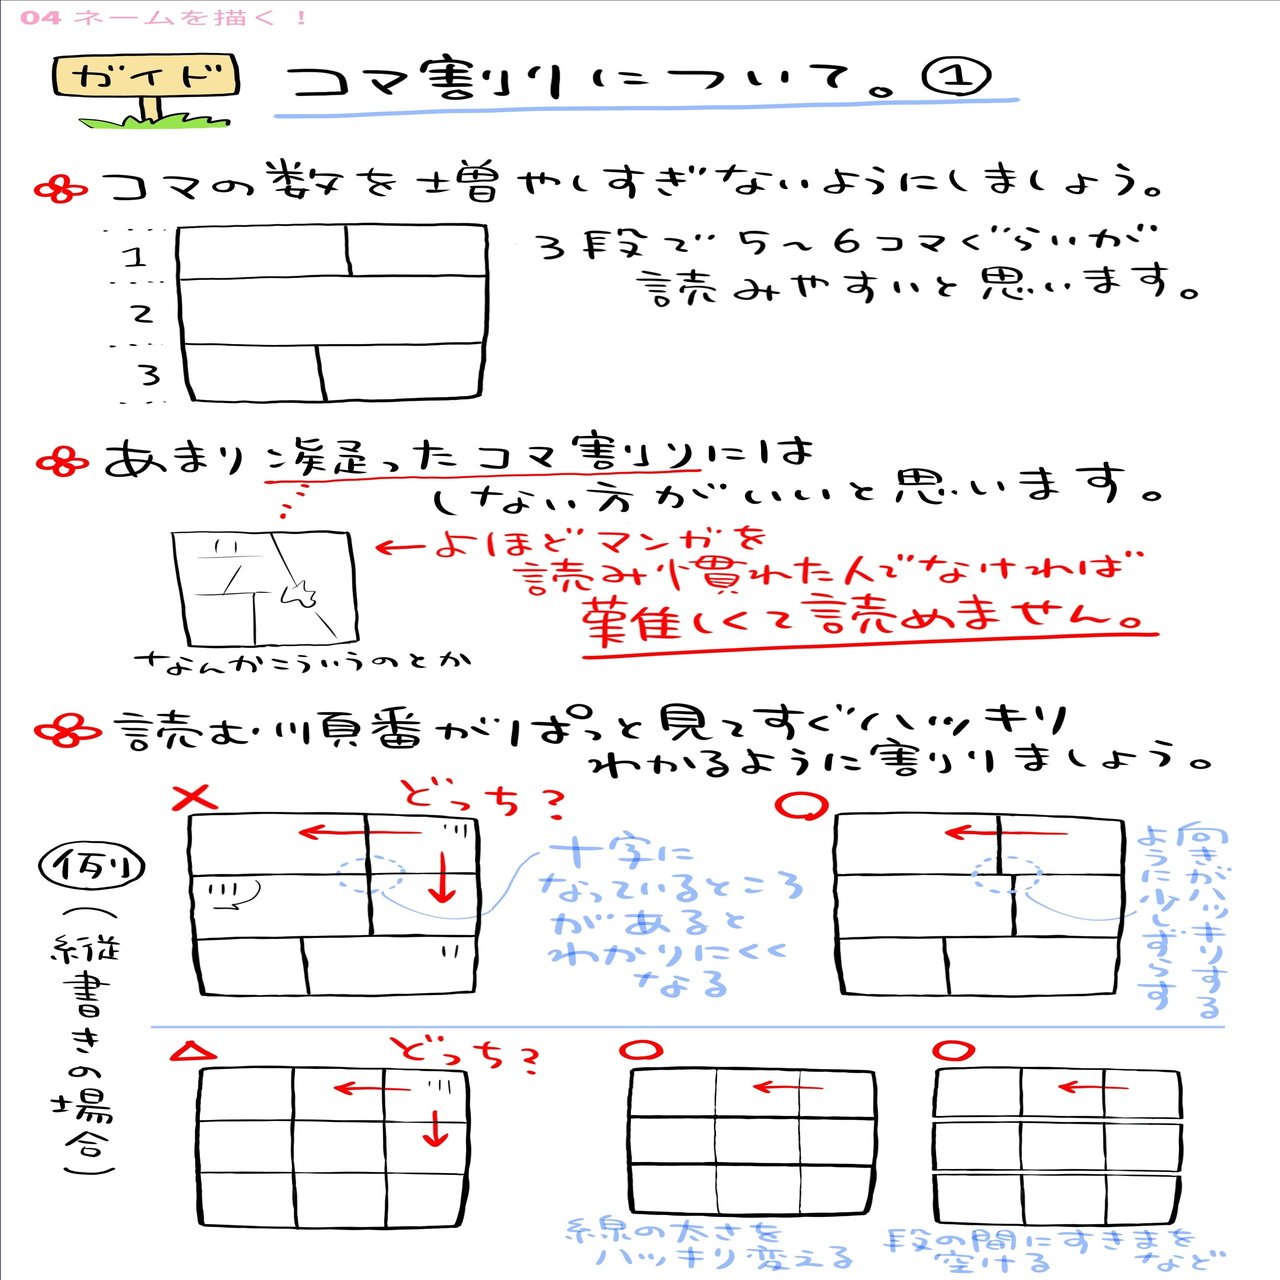 04 ネームを描く！
ガイド
コマ割りについて。①
コマの数を増やしすぎないようにしましょう。
1
2
3
3段で5〜6コマぐらいが
読みやすいと思います。
あまり凝ったコマ割りには
しない方がいいと思います。
なんかこういうのとか
←よほどマンガを
読み慣れた人でなければ
難しくて読めません。
読む順番がぱっと見てすぐハッキリ
わかるように割りましょう。
例
(縦書きの場合)
×
どっち？
十字に
なっているところ
があると
わかりにくく
なる
○
向きがハッキリする
ように少しずらす
△
どっち？
○
線の太さを
ハッキリ変える
○
段の間にすきまを
空ける など